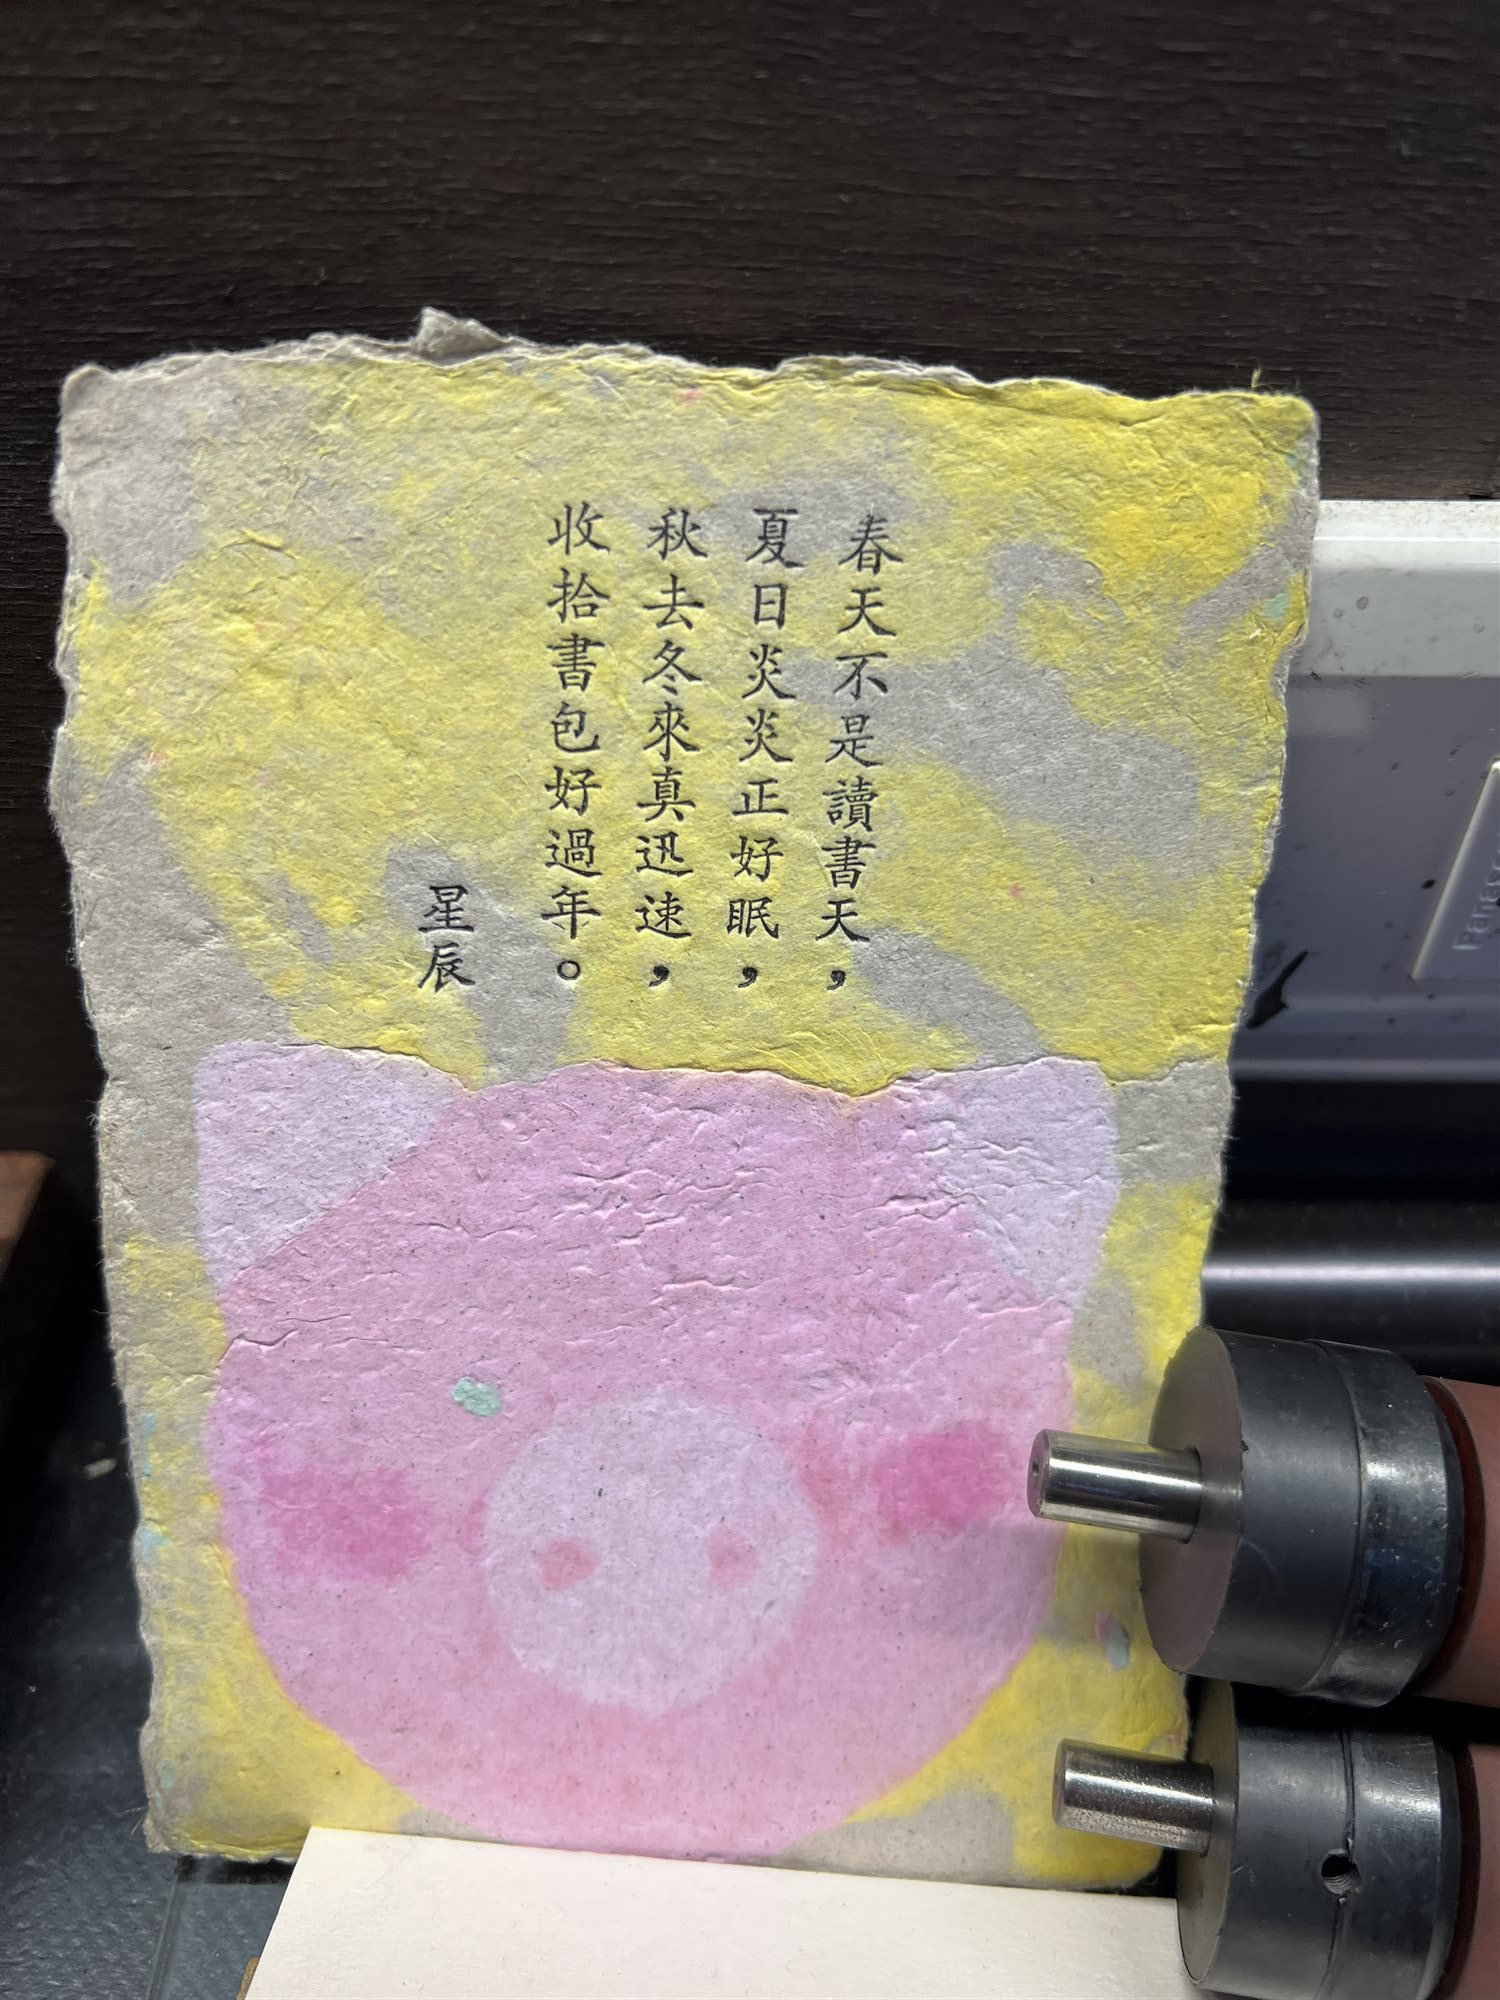 春天不是讀書天，
夏日炎炎正好眠，
秋去冬來真迅速，
收拾書包好過年。
星辰